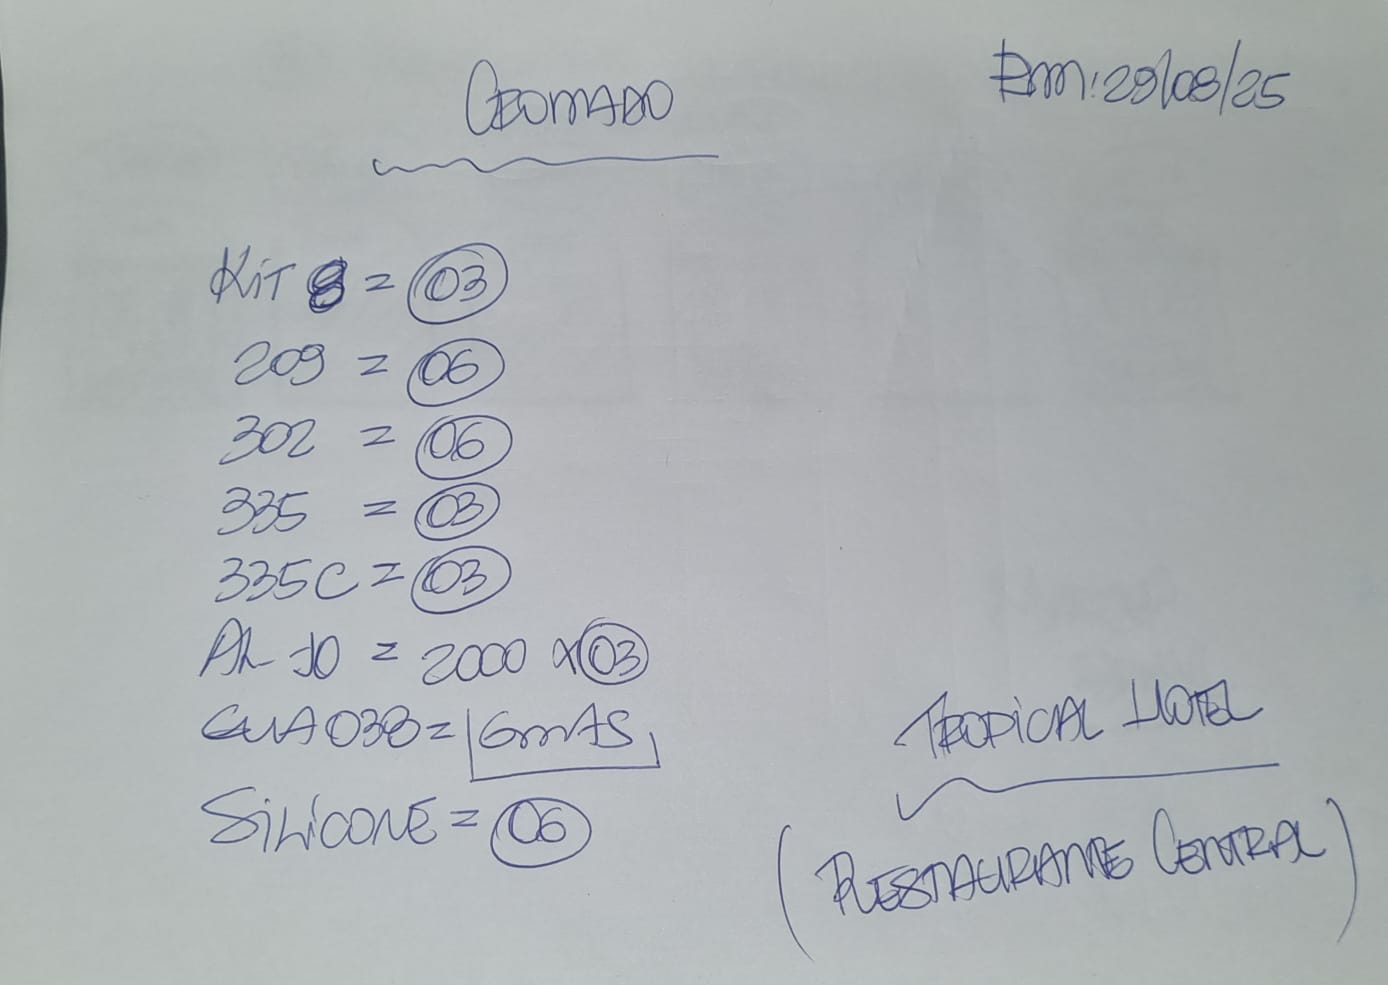 CROMADO
Em: 29/08/25
KiT 8 = 03
209 = 06
302 = 06
335 = 03
335C = 03
AL 10 = 2000 x 03
GUA 038 = 6mts
SiLiCONE = 06
TROPiCAL HOTEL
(RESTAURANTE CENTRAL)